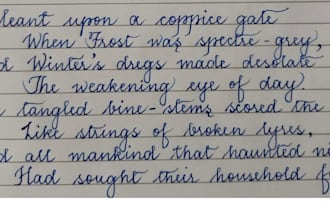 leant upon a coppice gate
When Frost was spectre-grey,
d Winter's dregs made desolate
The weakening eye of day.
tangled bine-stems scored the
Like strings of broken lyres,
d all mankind that haunted ni
Had sought their household f